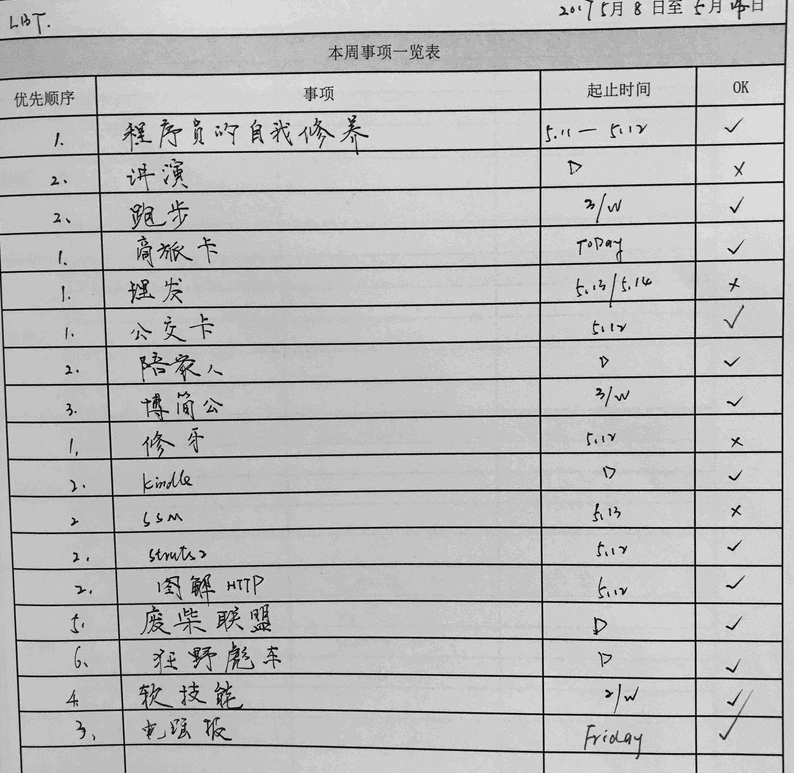 LBT. 2017 5月 8 日至 5月 14日
本周事项一览表
优先顺序 事项 起止时间 OK
1. 程序员的自我修养 5.11 — 5.12 ✓
2. 讲演 D ×
2. 跑步 3/W ✓
1. 商旅卡 Today ✓
1. 理发 5.13/5.14 ×
1. 公交卡 5.12 ✓
2. 陪家人 D ✓
3. 博简公 3/W ✓
1. 修牙 5.12 ×
2. kindle D ✓
2 SSM 5.13 ×
2. struts2 5.12 ✓
2. 图解 HTTP 5.12 ✓
5. 废柴联盟 D ✓
6. 狂野飙车 D ✓
4. 软技能 2/W ✓
3. Friday ✓